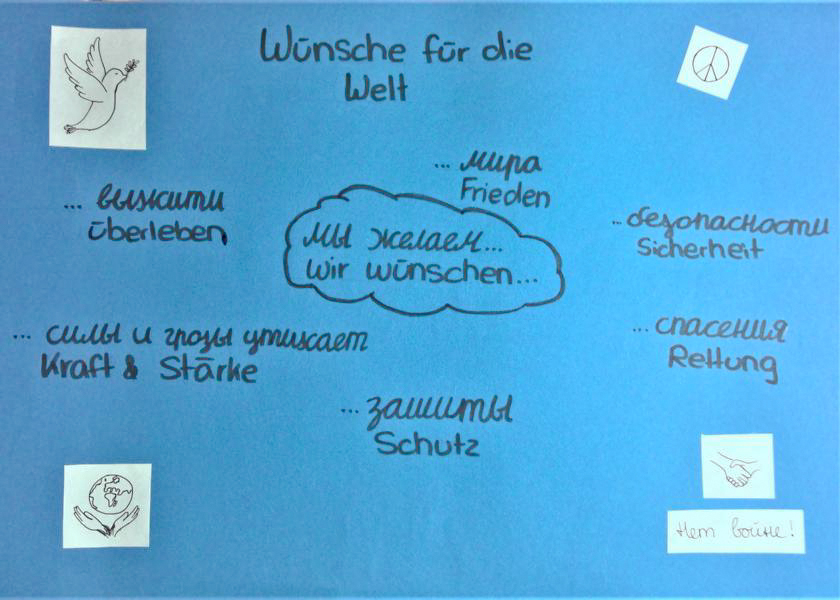 Wünsche für die
Welt
... мира
Frieden
... выжити
überleben
... безопасности
Sicherheit
мы желаем...
wir wünschen...
... силы и грозы утихает
Kraft & Stärke
... спасения
Rettung
... защиты
Schutz
Нет войне!